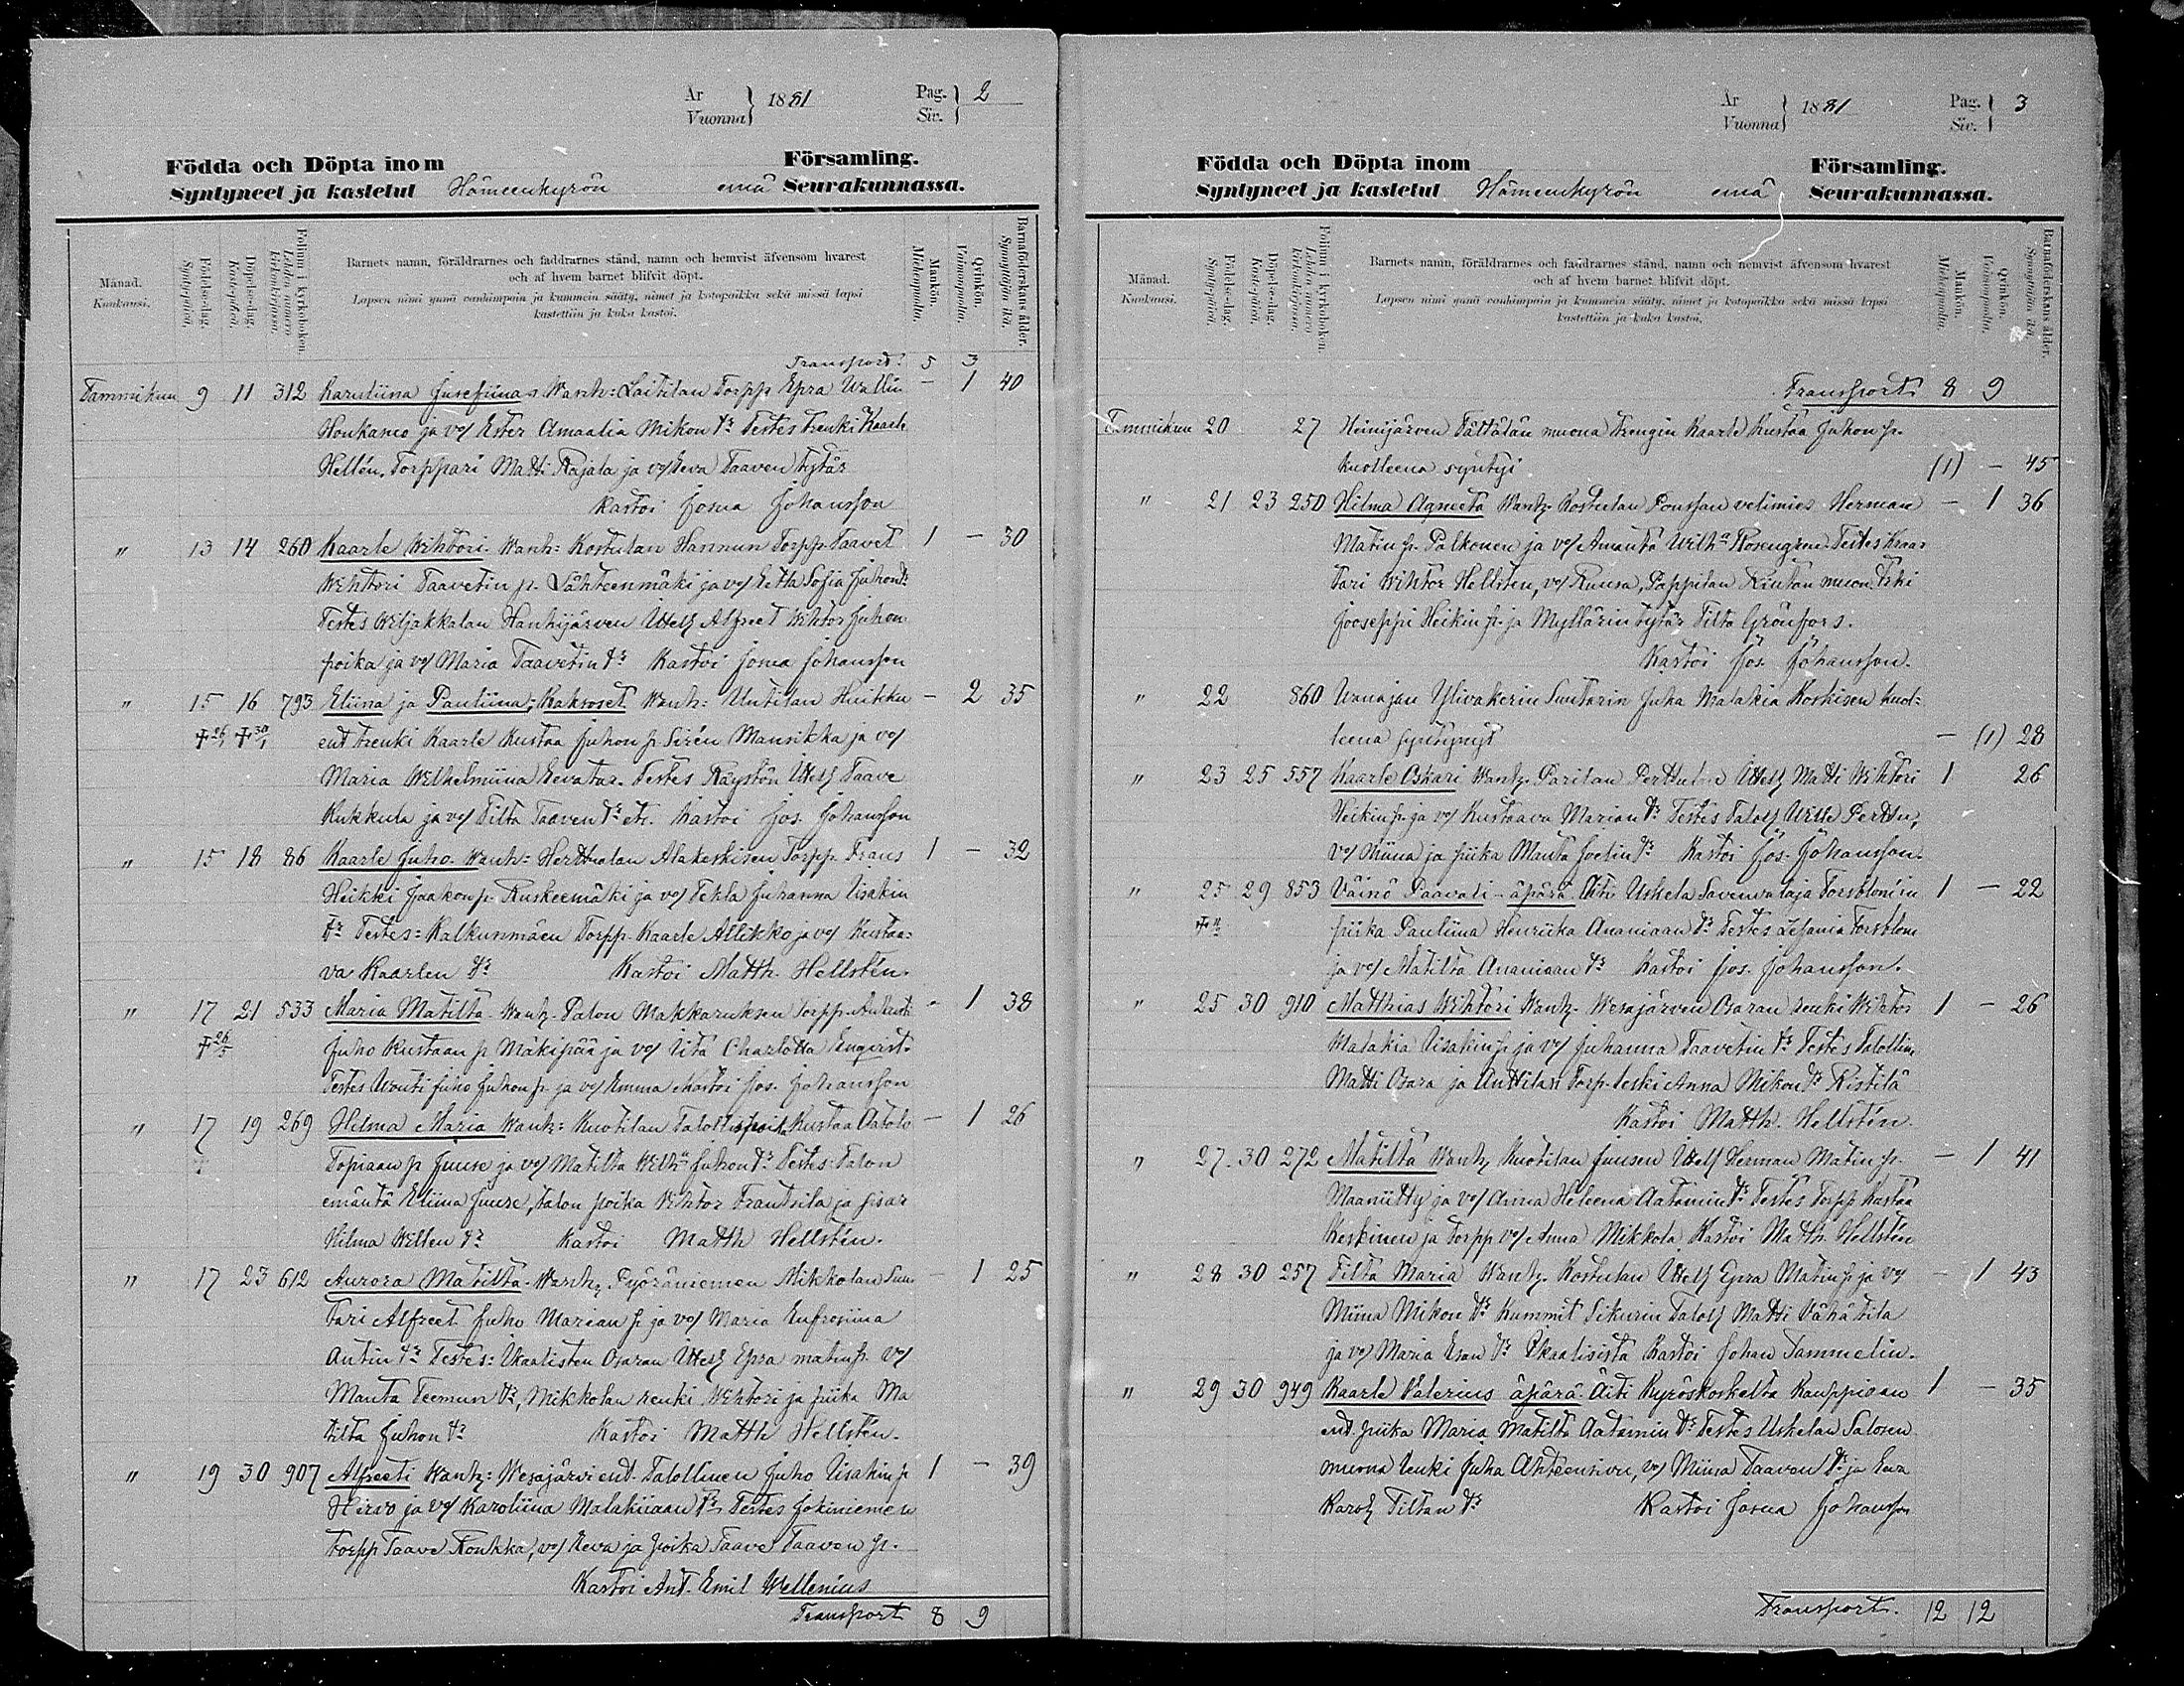 År
Vuonna } 1881
Pag.
Siv. } 2
Födda och Döpta inom Församling.
Syntyneet ja kastetut Hämeenkyrön emä Seurakunnassa.
Månad.
Kuukausi.
Födelse-dag.
Syntypäivä.
Döpelse-dag.
Kastepäivä.
Folium i kyrkoboken.
Lehden numero kirkonkirjassa.
Barnets namn, föräldrarnes och faddrarnes stånd, namn och hemvist äfvensom hvarest
och af hvem barnet blifvit döpt.
Lapsen nimi ynnä vanhimpain ja kummein sääty, nimet ja kotopaikka sekä missä lapsi
kastettiin ja kuka kastoi.
Mankön.
Miehenpuolia.
Qvinkön.
Vaimonpuolia.
Barnaföderskans ålder.
Synnyttäjän ikä.
Transport: 5 3
Tammikuu 9 11 312 Karuliina Josefiina Wanh: Laitilan Torpp. Epra Wallin - 1 40
Honkanen ja vo/ Ester Amaalia Mikon tr Testes Trenki Kaarle
Hellén, Torppari Matti Rajala ja vo/ Eeva Taaven tytär
Kastoi Josua Johansson
" 13 14 260 Kaarle Wihtori. Wanh: Kostulan Hannun Torpp. Taavet 1 - 30
Wihtori Taavetin p. Lähteenmäki ja vo/ Eetla Sofia Juhon tr
Testes Wiljakkalan Hanhijärven Ittell Alfreet Wihtor Juhon
poika ja vo/ Maria Taavetin tr Kastoi Josua Johansson
" 15 16 793 Eliina ja Pauliina, Kakroset Wanh: Untilan Huikku - 2 35
† 26/1 † 30/1 ent trenki Kaarle Kustaa Juhon p. Sirén Mansikka ja vo/
Maria Wilhelmiina Eevatar. Testes Räystön Ittell Taave
Kukkula ja vo/ Tilta Taaven tr etc. Kastoi Jos. Johansson
" 15 18 86 Kaarle Juho. Wanh: Herttualan Alakeskisen Torpp. Frans 1 - 32
Heikki Jaakon p. Ruskeemäki ja vo/ Tekla Juhanna Iisakin
tr Testes: Kalkunmäen Torpp. Kaarle Allikko ja vo/ Kustaa-
va Kaarlen tr Kastoi Matth. Hellstén.
" 17 21 533 Maria Matilta. Wanh. Palon Makkaruksen Torpp. Antti - 1 38
† 26/3 Juho Kustaan p Mäkipää ja vo/ Iita Charlotta Enqvist.
Testes Wouti Juho Juhon p. ja vo/ Emma Kastoi Jos. Johansson
" 17 19 269 Hilma Maria Wanh: Kuotilan Talollis poika Kustaa Aatolv - 1 26
† Topiaan p Juuse ja vo/ Matilta Wilha Juhon tr Testes: Talon
emäntä Eliina Juuse, talon poika Wihtor Frantsila ja sisar
Hilma Willen tr Kastoi Matth Hellstén.
" 17 23 612 Aurora Matilta. Wanh. Pyöräniemen Mikkolan Suu - 1 25
tari Alfreet Juho Marian p ja vo/ Maria Eufrosiina
Antin tr Testes: Ikaalisten Osaran Ittell Epra Matin p. vo/
Manta Teemun tr, Mikkolan renki Wihtori ja piika Ma
tilta Juhon tr Kastoi Matth Hellstén.
" 19 30 907 Alfreeti Wanh: Wesajärvi ent. Talollinen Juho Iisakin p 1 - 39
Hirvo ja vo/ Karoliina Malakiiaan tr Testes Jokiniemen
torpp Taave Roukka, vo/ Eeva ja poika Taave Taaven p.
Kastoi Ant. Emil Wellenius
Transport 8 9
År
Vuonna } 1881
Pag.
Siv. } 3
Födda och Döpta inom Församling.
Syntyneet ja kastetut Hämeenkyrön emä Seurakunnassa.
Månad.
Kuukausi.
Födelse-dag.
Syntypäivä.
Döpelse-dag.
Kastepäivä.
Folium i kyrkoboken.
Lehden numero kirkonkirjassa.
Barnets namn, föräldrarnes och faddrarnes stånd, namn och hemvist äfvensom hvarest
och af hvem barnet blifvit döpt.
Lapsen nimi ynnä vanhimpain ja kummein sääty, nimet ja kotopaikka sekä missä lapsi
kastettiin ja kuka kastoi.
Mankön.
Miehenpuolia.
Qvinkön.
Vaimonpuolia.
Barnaföderskans ålder.
Synnyttäjän ikä.
Transport 8 9
Tammikuu 20 27 Heinijärven Tättälän muona trengin Kaarle Kustaa Juhon p.
kuolleena syntyi (1) - 45
" 21 23 250 Hilma Agneeta Wanh. Kostulan Ponssan velimies Herman - 1 36
Matin p. Palkonen ja vo/ Amanta Wilha Rosengren. Testes Kraa-
tari Wihtor Hellsten, vo/ Ruusa, Pappilan Rintan muon. trki
Jooseppi Heikin p. ja Myllärin tytär Tilta Grönfors.
Kastoi Jos. Johansson.
" 22 860 Wanajan Ylivakerin Suutarin Juha Malakia Koskisen kuol-
leena syntynyt - (1) 28
" 23 25 557 Kaarle Oskari Wanh. Parilan Perttulan Ittell Matti Wihtori 1 26
Heikin p. ja vo/ Kustaava Marian tr Testes Taloll Wille Perttu,
vo/ Miina ja piika Manta Joelin tr Kastoi Jos. Johansson.
" 25 29 853 Väinö Taavali - äpärä. Äiti Uskela Savenvalaja Forsblomin 1 - 22
† piika Pauliina Henriika Ananiaan tr Testes Zefania Forsblom
ja vo/ Matilta Ananiaan tr Kastoi Jos. Johansson.
" 25 30 910 Matthias Wihtori Wanh. Wesajärven Osaran renki Wihtor 1 - 26
Malakia Iisakin p. ja vo/ Juhanna Taavetin tr Testes Talollin.
Matti Osara ja Anttilan Torp. leski Anna Mikon tr Ristilä
Kastoi Matth. Hellstén.
" 27 30 272 Matilta Wanh, Kuotilan Juusen Ittell Herman Matin p. - 1 41
Maaniitty ja vo/ Anna Heleena Aatamin tr Testes Torpp Kustaa
Keskinen ja Torpp vo/ Anna Mikkola Kastoi Matth. Hellstén
" 28 30 257 Tilta Maria Wanh. Kostulan Ittell Epra Matin p. ja vo/ - 1 43
Miina Mikon tr Kummit Sikurin Taloll Matti Vähätila
ja vo/ Maria Esan tr Ikaalisista Kastoi Johan Tammelin.
" 29 30 949 Kaarle Valerius äpärä Äiti Kyröskoskelta Kauppiaan 1 - 35
ent. piika Maria Matilta Aatamin tr Testes Uskelan Salosen
muona renki Juha Ahteensivu, vo/ Miina Taavan tr ja Eeva
Karol Tiltan tr Kastoi Josua Johansson
Transport. 12 12